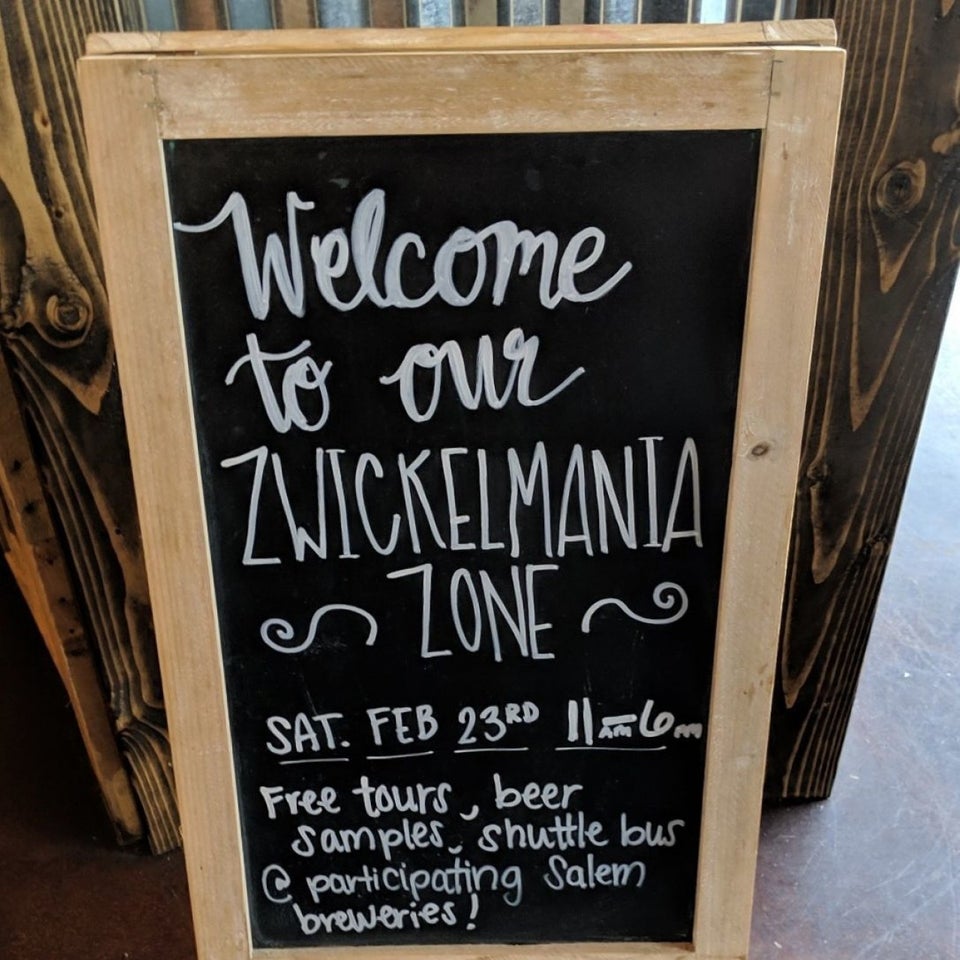 Welcome
to our
ZWICKELMANIA
ZONE
SAT. FEB 23RD 11AM-6PM
Free tours, beer
samples, shuttle bus
@ participating Salem
breweries!